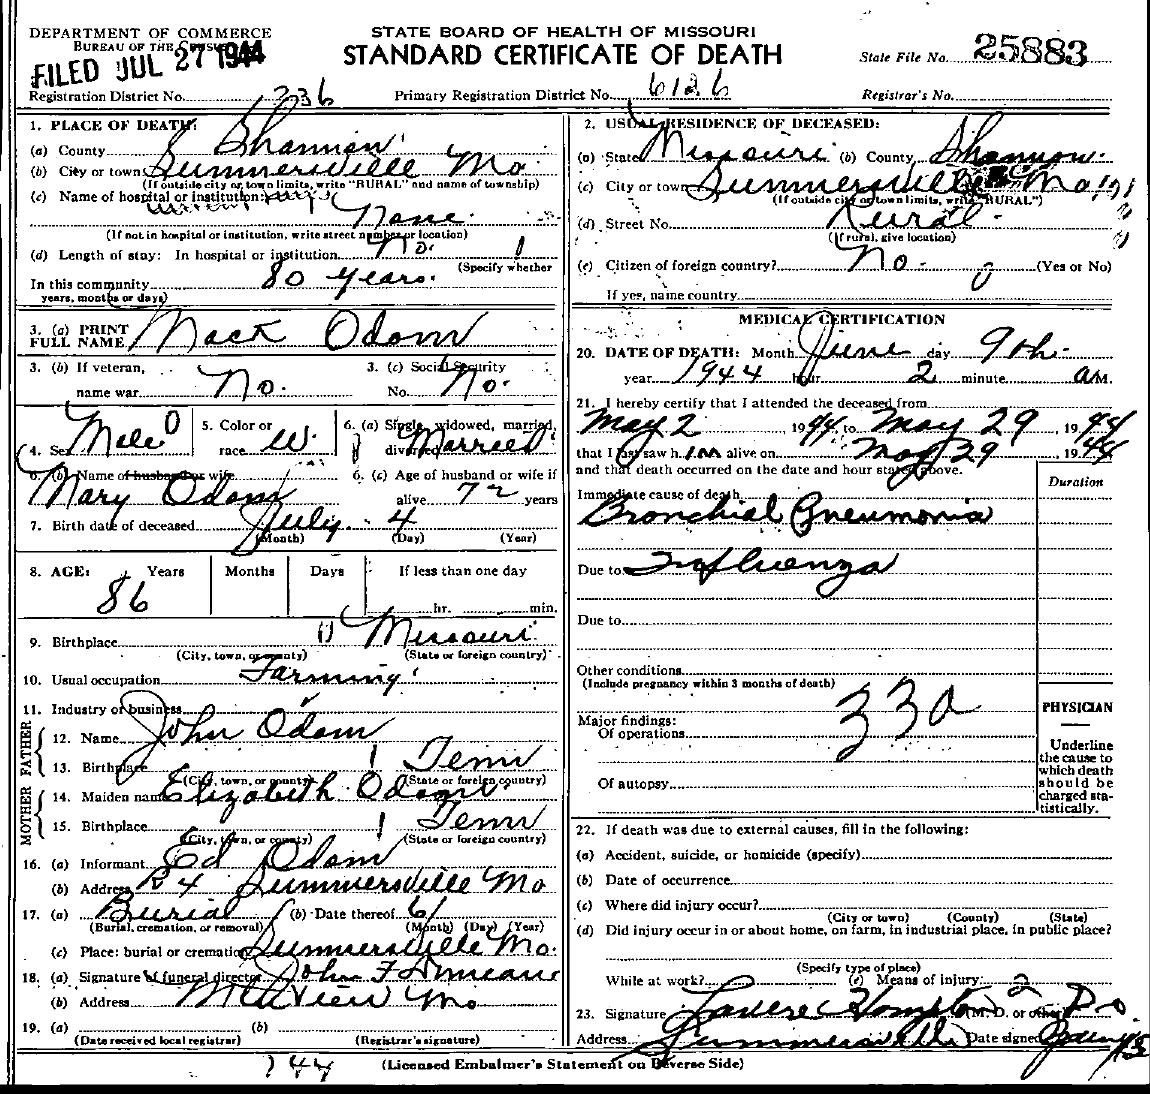 DEPARTMENT OF COMMERCE
BUREAU OF THE CENSUS
FILED JUL 27 1944
STATE BOARD OF HEALTH OF MISSOURI
STANDARD CERTIFICATE OF DEATH
State File No. 25883
Registration District No.
Primary Registration District No. 6126
Registrar's No.
1. PLACE OF DEATH:
(a) County Shannon
(b) City or town Summersville Mo
(If outside city or town limits, write "RURAL" and name of township)
(c) Name of hospital or institution:
None
(If not in hospital or institution, write street number or location)
(d) Length of stay: In hospital or institution No.
(Specify whether
In this community 80 years.
years, months or days)
3. (a) PRINT FULL NAME Mack Odom
3. (b) If veteran, name war No.
3. (c) Social Security No. No.
4. Sex Male
5. Color or race W.
6. (a) Single, widowed, married, divorced Married
6. (b) Name of husband or wife Mary Odom
6. (c) Age of husband or wife if alive 72 years
7. Birth date of deceased July 4
(Month) (Day) (Year)
8. AGE: Years Months Days If less than one day
86 hr. min.
9. Birthplace Missouri
(City, town, or county) (State or foreign country)
10. Usual occupation Farming
11. Industry or business
FATHER
12. Name John Odom
13. Birthplace Tenn
(City, town, or county) (State or foreign country)
MOTHER
14. Maiden name Elizabeth Odom
15. Birthplace Tenn
(City, town, or county) (State or foreign country)
16. (a) Informant Ed Odom
(b) Address R 4 Summersville Mo
17. (a) Burial (b) Date thereof 6/
(Burial, cremation, or removal) (Month) (Day) (Year)
(c) Place: burial or cremation Summersville Mo.
18. (a) Signature of funeral director John F
(b) Address Mt View Mo
19. (a) (b)
(Date received local registrar) (Registrar's signature)
2. USUAL RESIDENCE OF DECEASED:
(a) State Missouri (b) County Shannon
(c) City or town Summersville Mo
(If outside city or town limits, write "RURAL")
(d) Street No. Rural
(If rural, give location)
(e) Citizen of foreign country? No. (Yes or No)
If yes, name country
MEDICAL CERTIFICATION
20. DATE OF DEATH: Month June day 9th
year 1944 hour 2 minute a M.
21. I hereby certify that I attended the deceased from
May 2 1944 to May 29, 1944
that I last saw him alive on May 29, 1944
and that death occurred on the date and hour stated above.
Duration
Immediate cause of death
Bronchial Pneumonia
Due to Influenza
Due to
Other conditions
(Include pregnancy within 3 months of death)
33a
Major findings:
Of operations
Of autopsy
PHYSICIAN
Underline the cause to which death should be charged statistically.
22. If death was due to external causes, fill in the following:
(a) Accident, suicide, or homicide (specify)
(b) Date of occurrence
(c) Where did injury occur?
(City or town) (County) (State)
(d) Did injury occur in or about home, on farm, in industrial place, in public place?
(Specify type of place)
While at work? (e) Means of injury
23. Signature (M. D. or other) D.O.
Address Summersville Date signed
744
(Licensed Embalmer's Statement on Reverse Side)